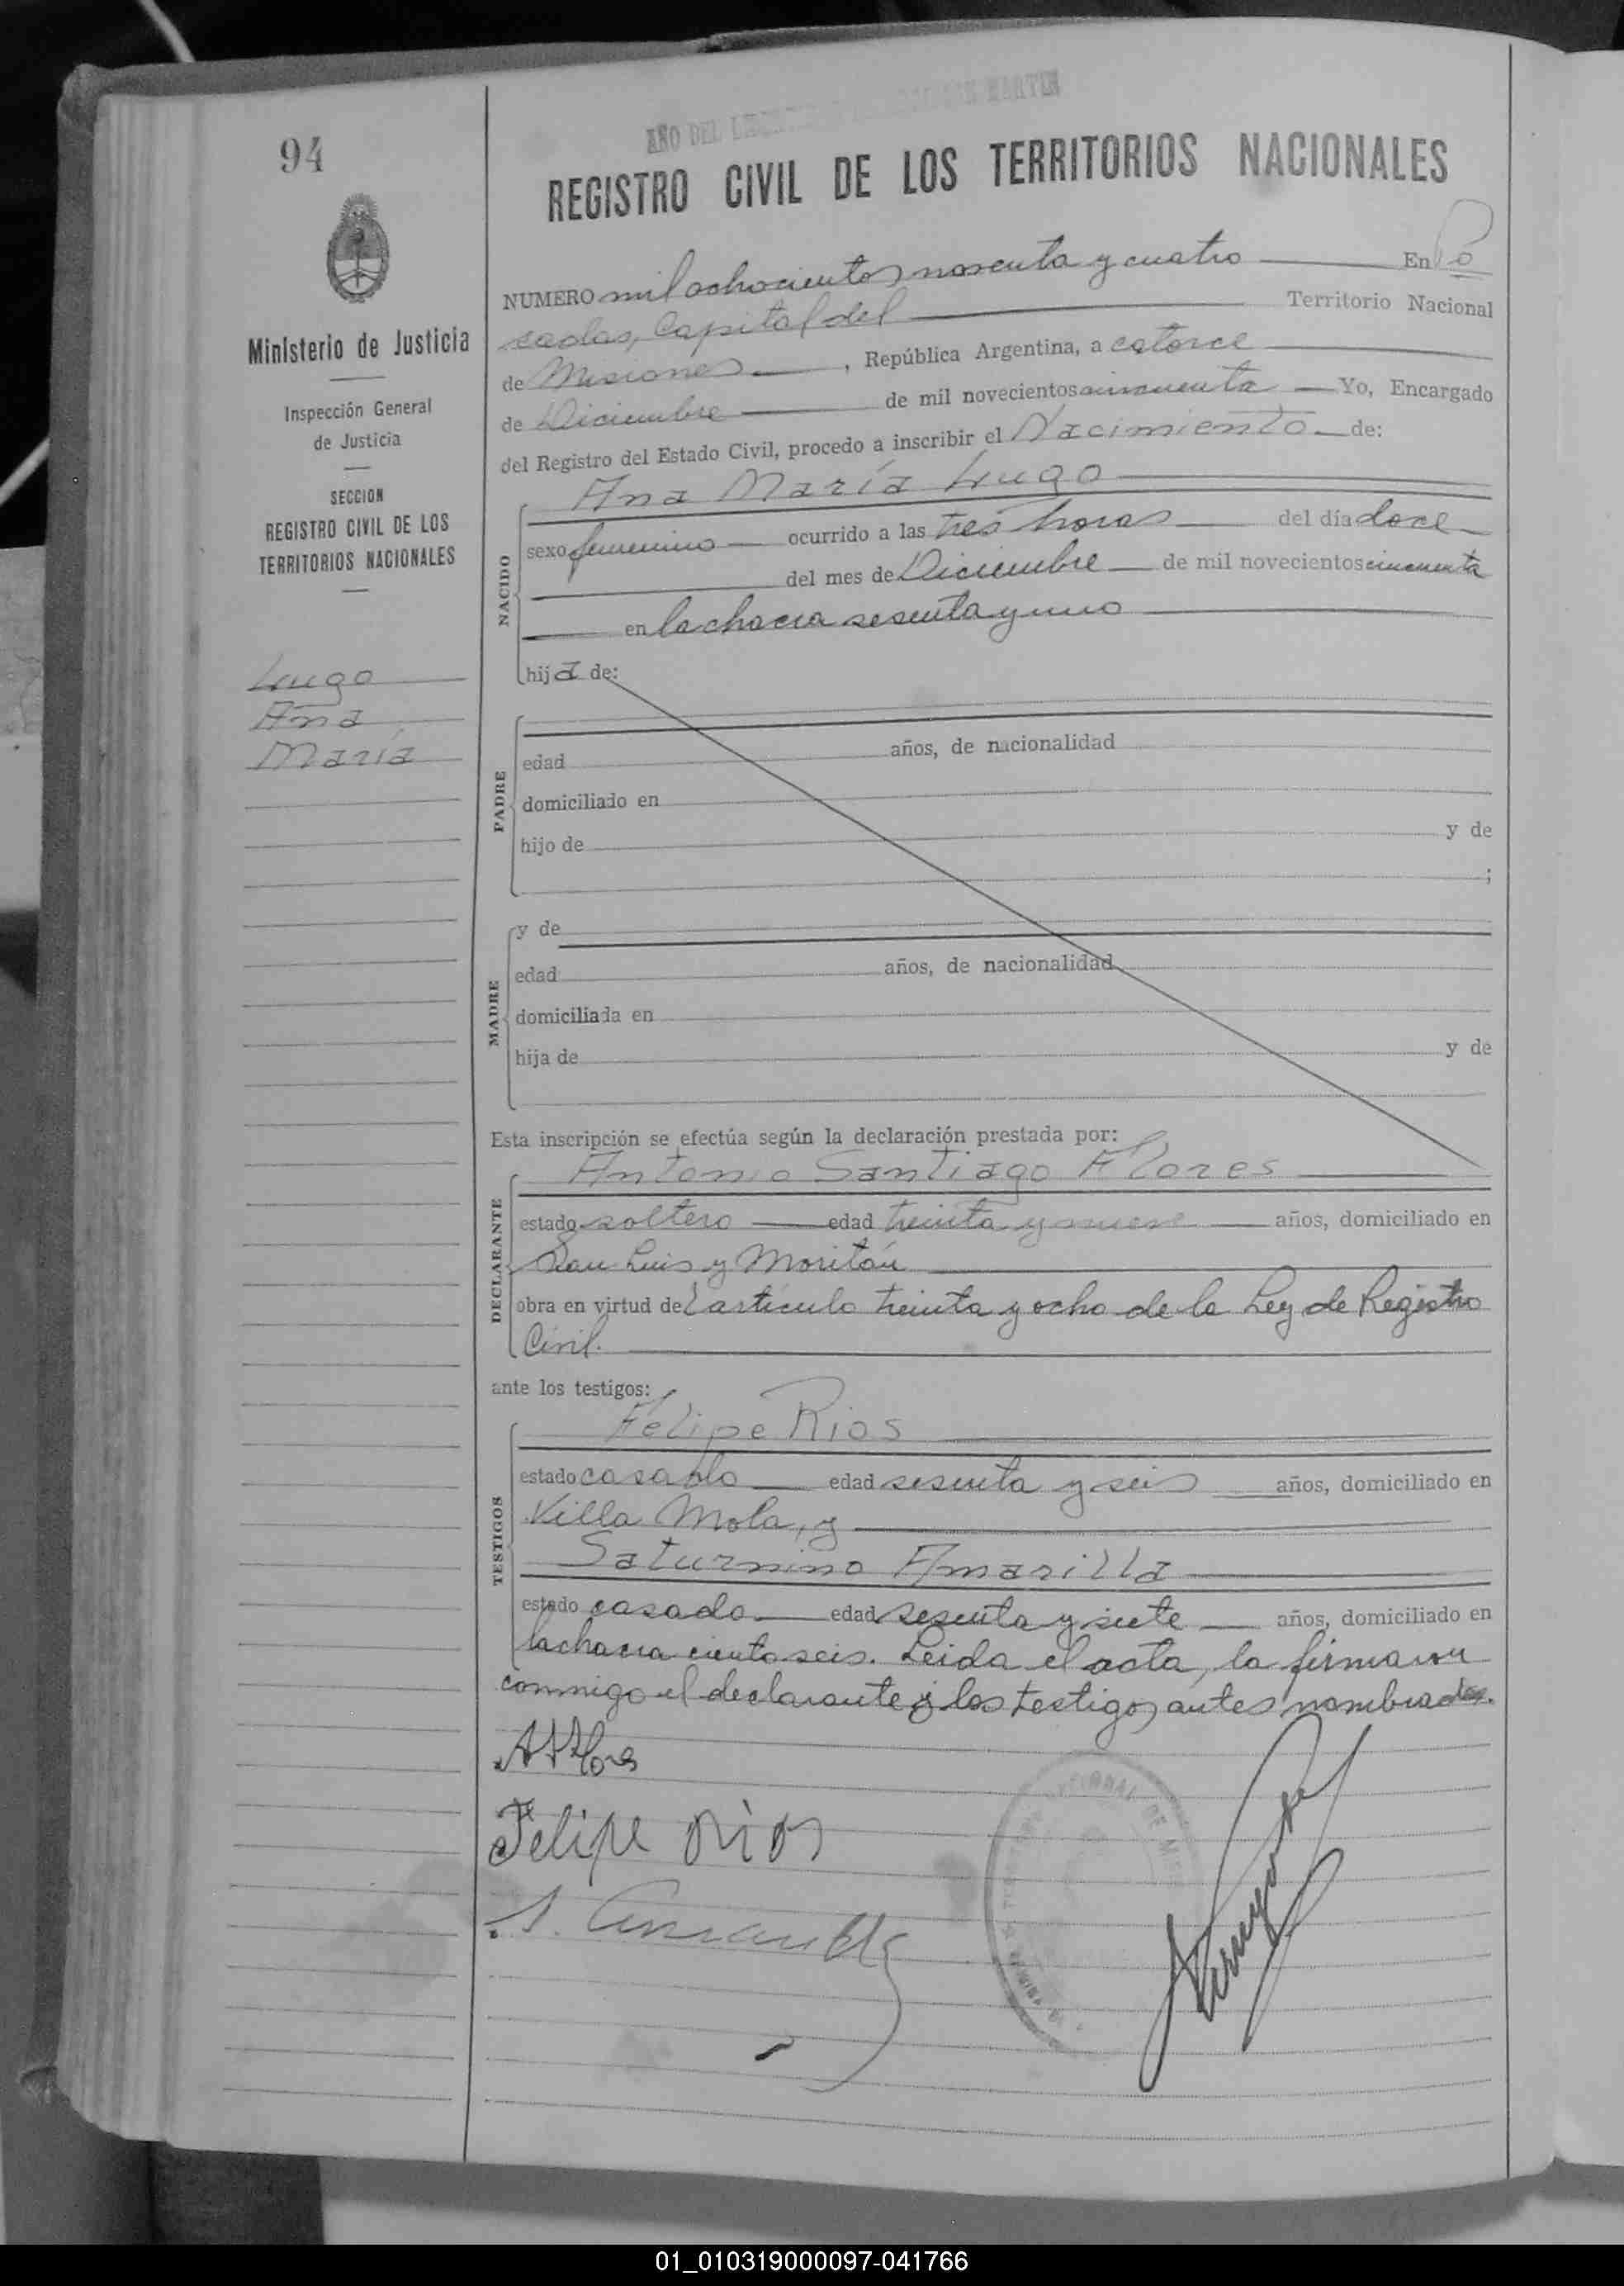 94
AÑO DEL LIBERTADOR GENERAL SAN MARTIN
REGISTRO CIVIL DE LOS TERRITORIOS NACIONALES
Ministerio de Justicia
Inspección General
de Justicia
SECCION
REGISTRO CIVIL DE LOS
TERRITORIOS NACIONALES
Lugo
Ana
María
NUMERO mil ochocientos noventa y cuatro En Po
sadas, Capital del Territorio Nacional
de Misiones, República Argentina, a catorce
de Diciembre de mil novecientos cincuenta Yo, Encargado
del Registro del Estado Civil, procedo a inscribir el Nacimiento de:
NACIDO
Ana María Lugo
sexo femenino ocurrido a las tres horas del día doce
del mes de Diciembre de mil novecientos cincuenta
en la chacra sesenta y uno
hija de:
PADRE
edad años, de nacionalidad
domiciliado en
hijo de y de
;
MADRE
y de
edad años, de nacionalidad
domiciliada en
hija de y de
Esta inscripción se efectúa según la declaración prestada por:
DECLARANTE
Antonio Santiago Flores
estado soltero edad treinta y nueve años, domiciliado en
San Luis y Moritán
obra en virtud del artículo treinta y ocho de la Ley de Registro
Civil.
ante los testigos:
TESTIGOS
Felipe Rios
estado casado edad sesenta y seis años, domiciliado en
Villa Mola, y
Saturnino Amarilla
estado casado edad sesenta y siete años, domiciliado en
la chacra ciento seis. Leida el acta, la firmaron
conmigo el declarante y los testigos antes nombrados.
A S Flores
Felipe Rios
S. Amarilla
01_010319000097-041766